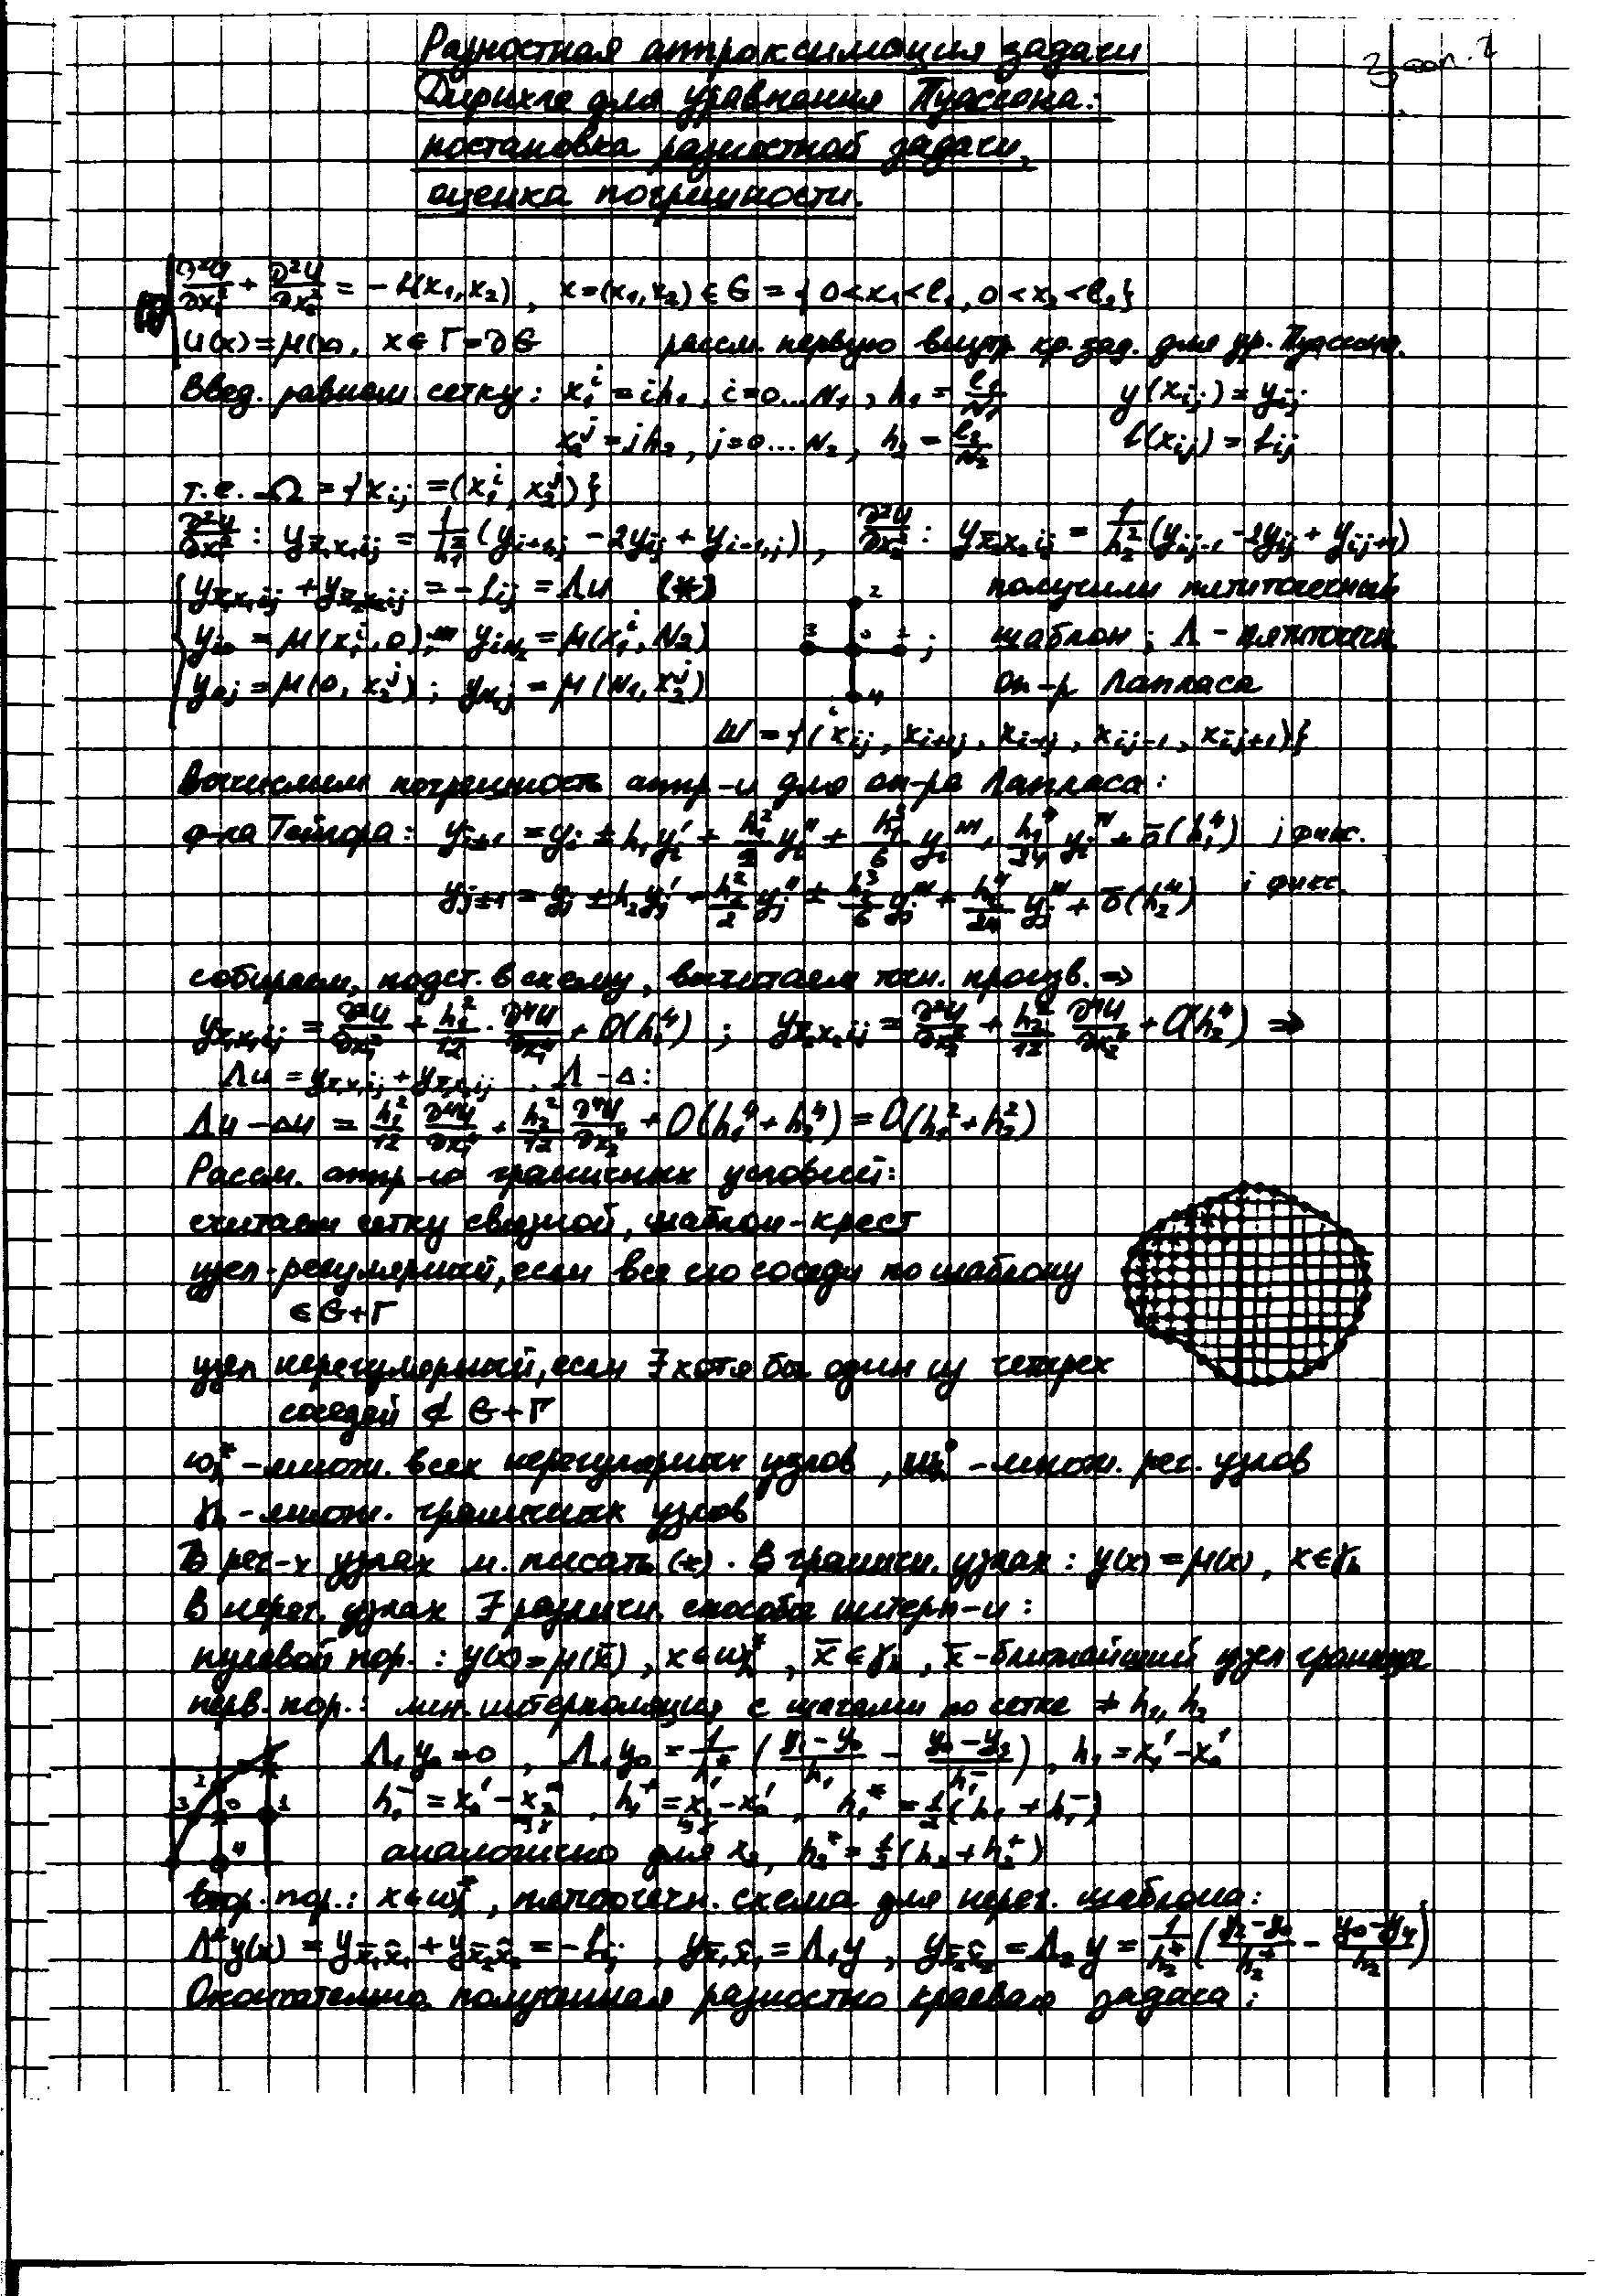 Разностная аппроксимация задачи
Дирихле для уравнения Пуассона:
постановка разностной задачи,
оценка погрешности.
∂²u/∂x₁² + ∂²u/∂x₂² = -f(x₁, x₂), x = (x₁, x₂) ∈ G = {0<x₁<l₁, 0<x₂<l₂}
u(x) = μ(x), x ∈ Γ = ∂G рассм. первую внутр. кр. зад. для ур. Пуассона.
Введ. равном сетку: x₁ⁱ = ih₁, i=0...N₁, h₁ = l₁/N₁ y(x_ij) = y_ij
x₂ʲ = jh₂, j=0...N₂, h₂ = l₂/N₂ f(x_ij) = f_ij
т.е. Ω = {x_ij = (x₁ⁱ, x₂ʲ)}
∂²u/∂x₁²: y_x̄₁x₁ij = 1/h₁² (y_i+1,j - 2y_ij + y_i-1,j), ∂²u/∂x₂²: y_x̄₂x₂ij = 1/h₂² (y_ij-1 - 2y_ij + y_ij+1)
y_x̄₁x₁ij + y_x̄₂x₂ij = -f_ij = Λu (*) получили пятиточечный
y_i0 = μ(x₁ⁱ, 0); y_iN₂ = μ(x₁ⁱ, N₂) ; шаблон; Λ - пятиточечн
y_0j = μ(0, x₂ʲ); y_N₁j = μ(N₁, x₂ʲ) оп-р Лапласа
Ш = {(x_ij, x_i+1j, x_i-1j, x_ij-1, x_ij+1)}
Вычислим погрешность аппр-и для оп-ра Лапласа:
ф-ла Тейлора: y_i±1 = y_i ± h₁y_i' + h₁²/2 y_i'' ± h₁³/6 y_i''' + h₁⁴/24 y_i^IV + ō(h₁⁴) j фикс.
y_j±1 = y_j ± h₂y_j' + h₂²/2 y_j'' ± h₂³/6 y_j''' + h₂⁴/24 y_j^IV + ō(h₂⁴) i фикс.
собираем, подст. в схему, вычитаем точн. произв. ⇒
y_x̄₁x₁ij = ∂²u/∂x₁² + h₁²/12 · ∂⁴u/∂x₁⁴ + O(h₁⁴) ; y_x̄₂x₂ij = ∂²u/∂x₂² + h₂²/12 ∂⁴u/∂x₂⁴ + O(h₂⁴) ⇒
Λu = y_x̄₁x₁ij + y_x̄₂x₂ij , Λ - Δ:
Λu - Δu = h₁²/12 ∂⁴u/∂x₁⁴ + h₂²/12 ∂⁴u/∂x₂⁴ + O(h₁⁴ + h₂⁴) = O(h₁² + h₂²)
Рассм. аппр-ю граничных условий:
считаем сетку связной, шаблон - крест
узел - регулярный, если все его соседи по шаблону
∈ G+Γ
узел нерегулярный, если ∃ хотя бы один из четырех
соседей ∉ G+Γ
ω_h* - множ. всех нерегулярных узлов, - множ. рег. узлов
γ_h - множ. граничных узлов
В рег-х узлах м. писать (*). В граничн. узлах: y(x) = μ(x), x ∈ γ_h
В нерег. узлах ∃ различн. способы интерп-и:
нулевой пор.: y(x) = μ(x̄), x ∈ ω_h*, x̄ ∈ γ_h, x̄ - ближайший узел границы
перв. пор.: лин. интерполяция с шагами по сетке ≠ h₁, h₂
Λ₁y₀ = 0, Λ₁y₀ = 1/h₁* ((y₁-y₀)/h₁ - (y₀-y₃)/h₁⁻), h₁ = x₁' - x₀'
h₁⁻ = x₀' - x₃', h₁⁺ = x₁' - x₀', h₁* = 1/2 (h₁ + h₁⁻)
аналогично для x₂, h₂* = 1/2 (h₂ + h₂⁺)
втор. пор.: x ∈ ω_h*, пятиточечн. схема для нерег. шаблона:
Λ*y(x) = y_x̄₁x̂₁ + y_x̄₂x̂₂ = -f_ij, y_x̄₁x̂₁ = Λ₁y, y_x̄₂x̂₂ = Λ₂y = 1/h₂* ((y₂-y₀)/h₂⁺ - (y₀-y₄)/h₂)
Окончательно полученная разностно краевая задача: